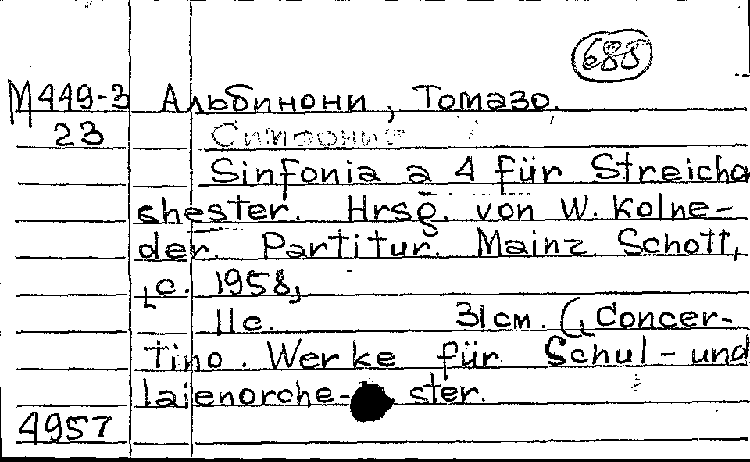 688
М449-3 Альбинони, Томазо.
23 Симфония
Sinfonia a 4 für Streicho
chester. Hrsg. von W. Kolne-
der. Partitur. Mainz Schott,
c. 1958,
11с. 31см. (Concer-
tino. Werke für Schul- und
laienorche- ster.
4957